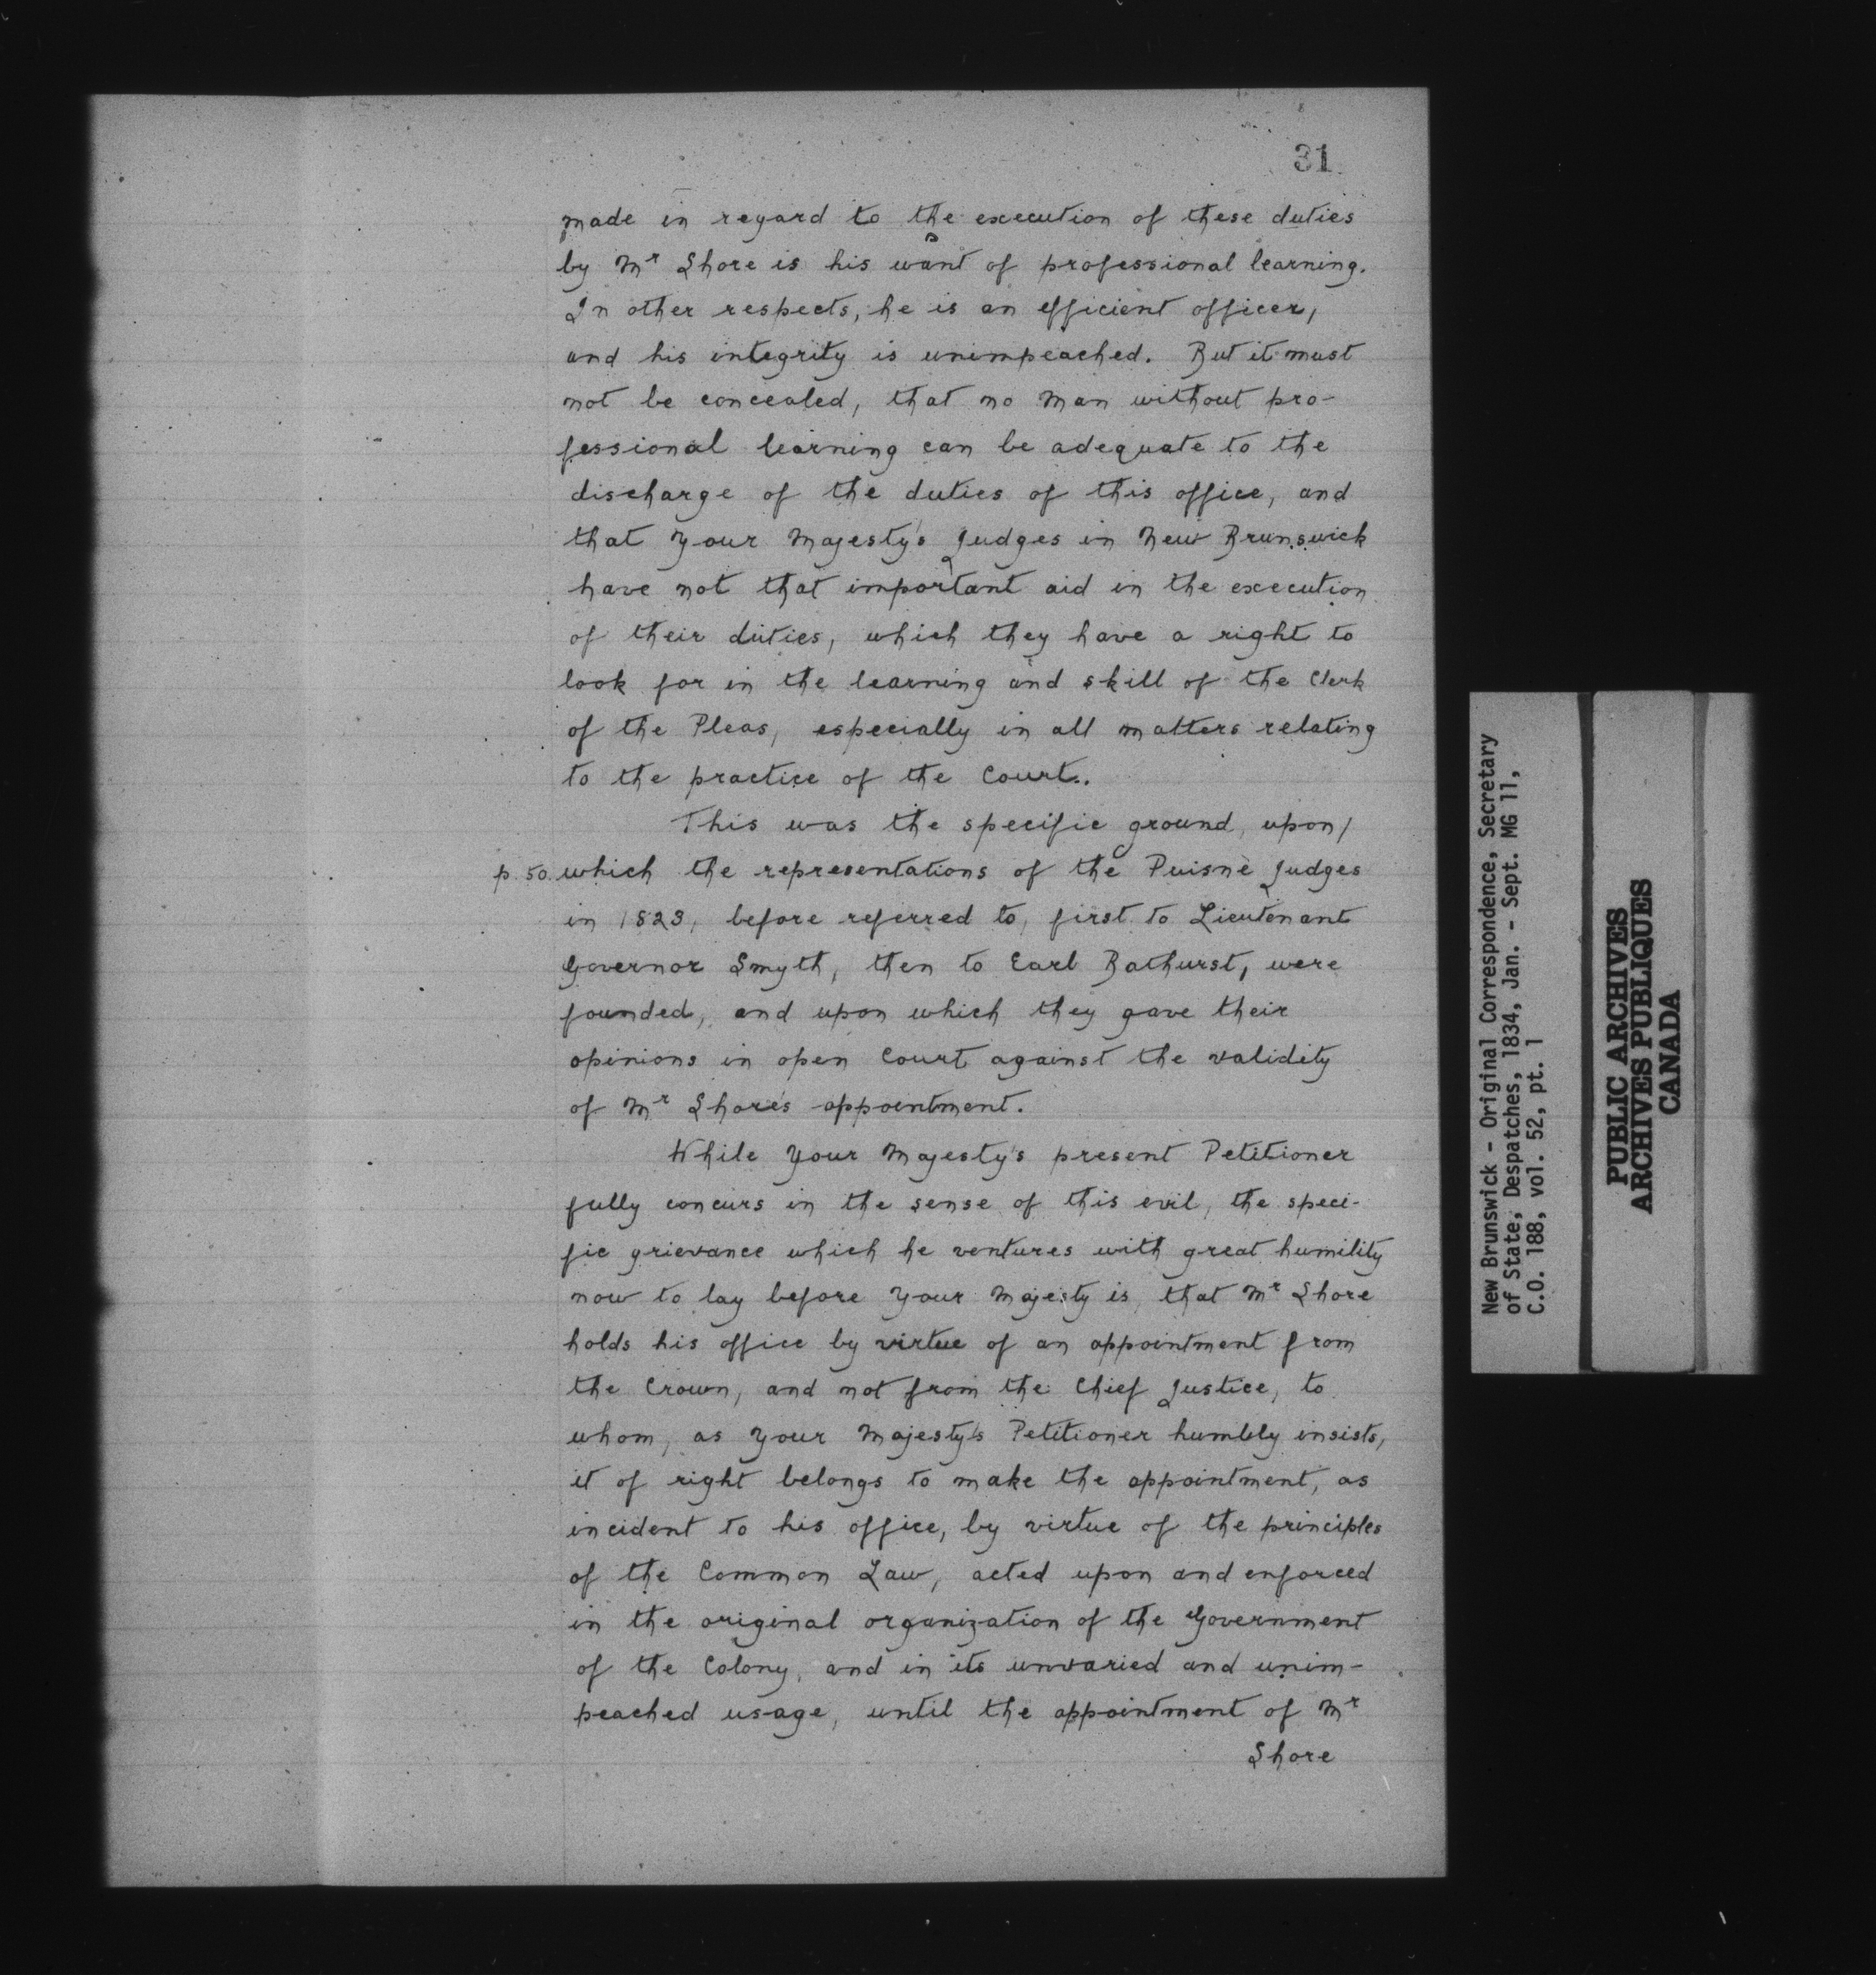 31
made in regard to the execution of these duties
by Mr Shore is his want of professional learning.
In other respects, he is an efficient officer,
and his integrity is unimpeached. But it must
not be concealed, that no man without pro-
fessional learning can be adequate to the
discharge of the duties of this office, and
that Your Majesty's Judges in New Brunswick
have not that important aid in the execution
of their duties, which they have a right to
look for in the learning and skill of the Clerk
of the Pleas, especially in all matters relating
to the practice of the Court.
This was the specific ground, upon/
p. 50. which the representations of the Puisnè Judges
in 1823, before referred to, first to Lieutenant
Governor Smyth, then to Earl Bathurst, were
founded, and upon which they gave their
opinions in open Court against the validity
of Mr Shore's appointment.
While Your Majesty's present Petitioner
fully concurs in the sense of this evil, the speci-
fic grievance which he ventures with great humility
now to lay before Your Majesty is, that Mr Shore
holds his office by virtue of an appointment from
the Crown, and not from the Chief Justice, to
whom, as Your Majesty's Petitioner humbly insists,
it of right belongs to make the appointment, as
incident to his office, by virtue of the principles
of the Common Law, acted upon and enforced
in the original organization of the Government
of the Colony, and in its unvaried and unim-
peached usage, until the appointment of Mr
Shore
New Brunswick - Original Correspondence, Secretary
of State, Despatches, 1834, Jan. - Sept. MG 11,
C.O. 188, vol. 52, pt. 1
PUBLIC ARCHIVES
ARCHIVES PUBLIQUES
CANADA